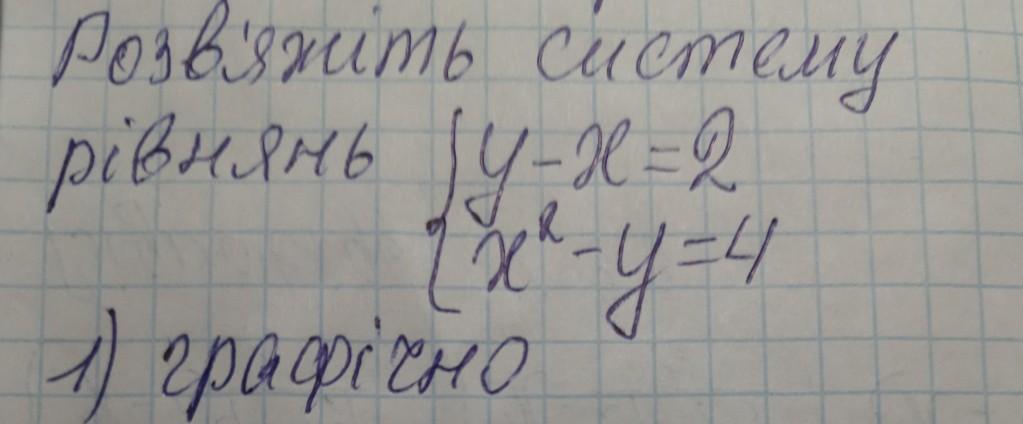 Розв'яжіть систему
рівнянь { y - x = 2
x² - y = 4
1) графічно